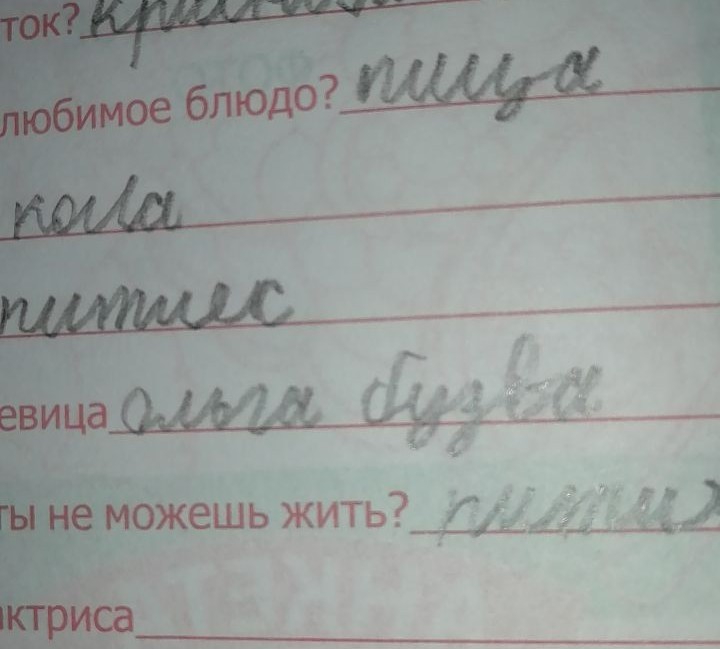 ток?
любимое блюдо? пицца
кола
евица ольга бузва
ты не можешь жить?
актриса